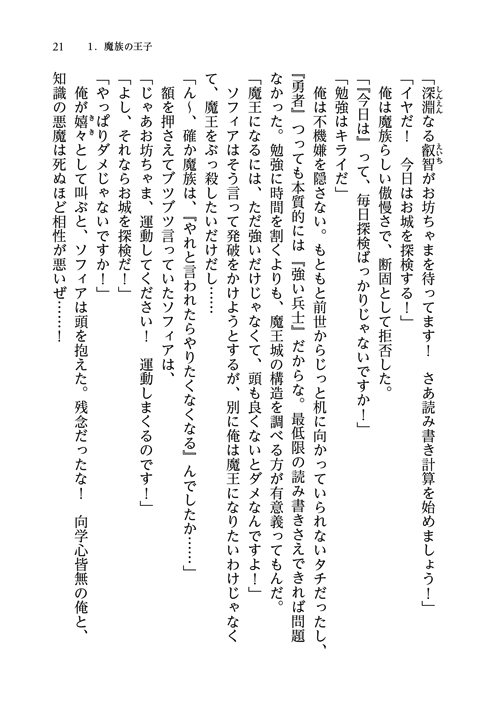 21　1．魔族の王子
「深淵なる叡智がお坊ちゃまを待ってます！　さあ読み書き計算を始めましょう！」
「イヤだ！　今日はお城を探検する！」
「『今日は』って、毎日探検ばっかりじゃないですか！」
俺は魔族らしい傲慢さで、断固として拒否した。
「勉強はキライだ」
俺は不機嫌を隠さない。もともと前世からじっと机に向かっていられないタチだったし、
『勇者』つっても本質的には『強い兵士』だからな。最低限の読み書きさえできれば問題
なかった。勉強に時間を割くよりも、魔王城の構造を調べる方が有意義ってもんだ。
「魔王になるには、ただ強いだけじゃなくて、頭も良くないとダメなんですよ！」
ソフィアはそう言って発破をかけようとするが、別に俺は魔王になりたいわけじゃなく
て、魔王をぶっ殺したいだけだし……
「ん～、確か魔族は、『やれと言われたらやりたくなくなる』んでしたか……」
額を押さえてブツブツ言っていたソフィアは、
「じゃあお坊ちゃま、運動してください！　運動しまくるのです！」
「よし、それならお城を探検だ！」
「やっぱりダメじゃないですか！」
俺が嬉々として叫ぶと、ソフィアは頭を抱えた。残念だったな！　向学心皆無の俺と、
知識の悪魔は死ぬほど相性が悪いぜ……！